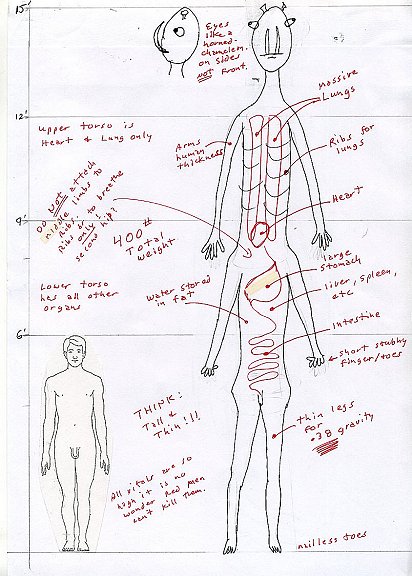 15'
Eyes
like a
horned-
chameleon
on sides
not front.
12'
Massive
Lungs
Upper torso is
Heart & Lung only
Arms
human
thickness
Ribs for
Lungs
Do NOT attach
middle limbs to
Ribs.
Ribs are to breathe
only!
second hip?
Heart
9'
400#
Total
Weight
large
stomach
Lower torso
has all other
organs
water stored
in fat
liver, spleen,
etc
6'
Intestine
short stubby
finger/toes
THINK:
Tall &
Thin!!!
thin legs
for
.38 gravity
All vitals are so
high it is no
wonder Red Men
can't kill them.
nailless toes